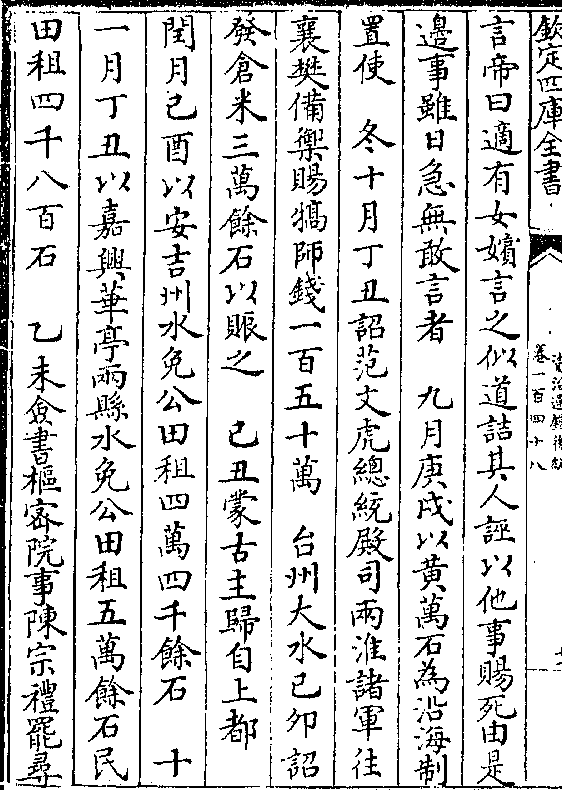 欽定四庫全書
資治通鑑後編
卷一百四十八
言帝曰適有女嬪言之似道詰其人誣以他事賜死由是
邊事雖日急無敢言者　九月庚戌以黃萬石為沿海制
置使　冬十月丁丑詔范文虎總統殿司兩淮諸軍往
襄樊備禦賜犒師錢一百五十萬　台州大水己卯詔
發倉米三萬餘石以賑之　己丑蒙古主歸自上都
閏月己酉以安吉州水免公田租四萬四千餘石　十
一月丁丑以嘉興華亭兩縣水免公田租五萬餘石民
田租四千八百石　乙未僉書樞密院事陳宗禮罷尋